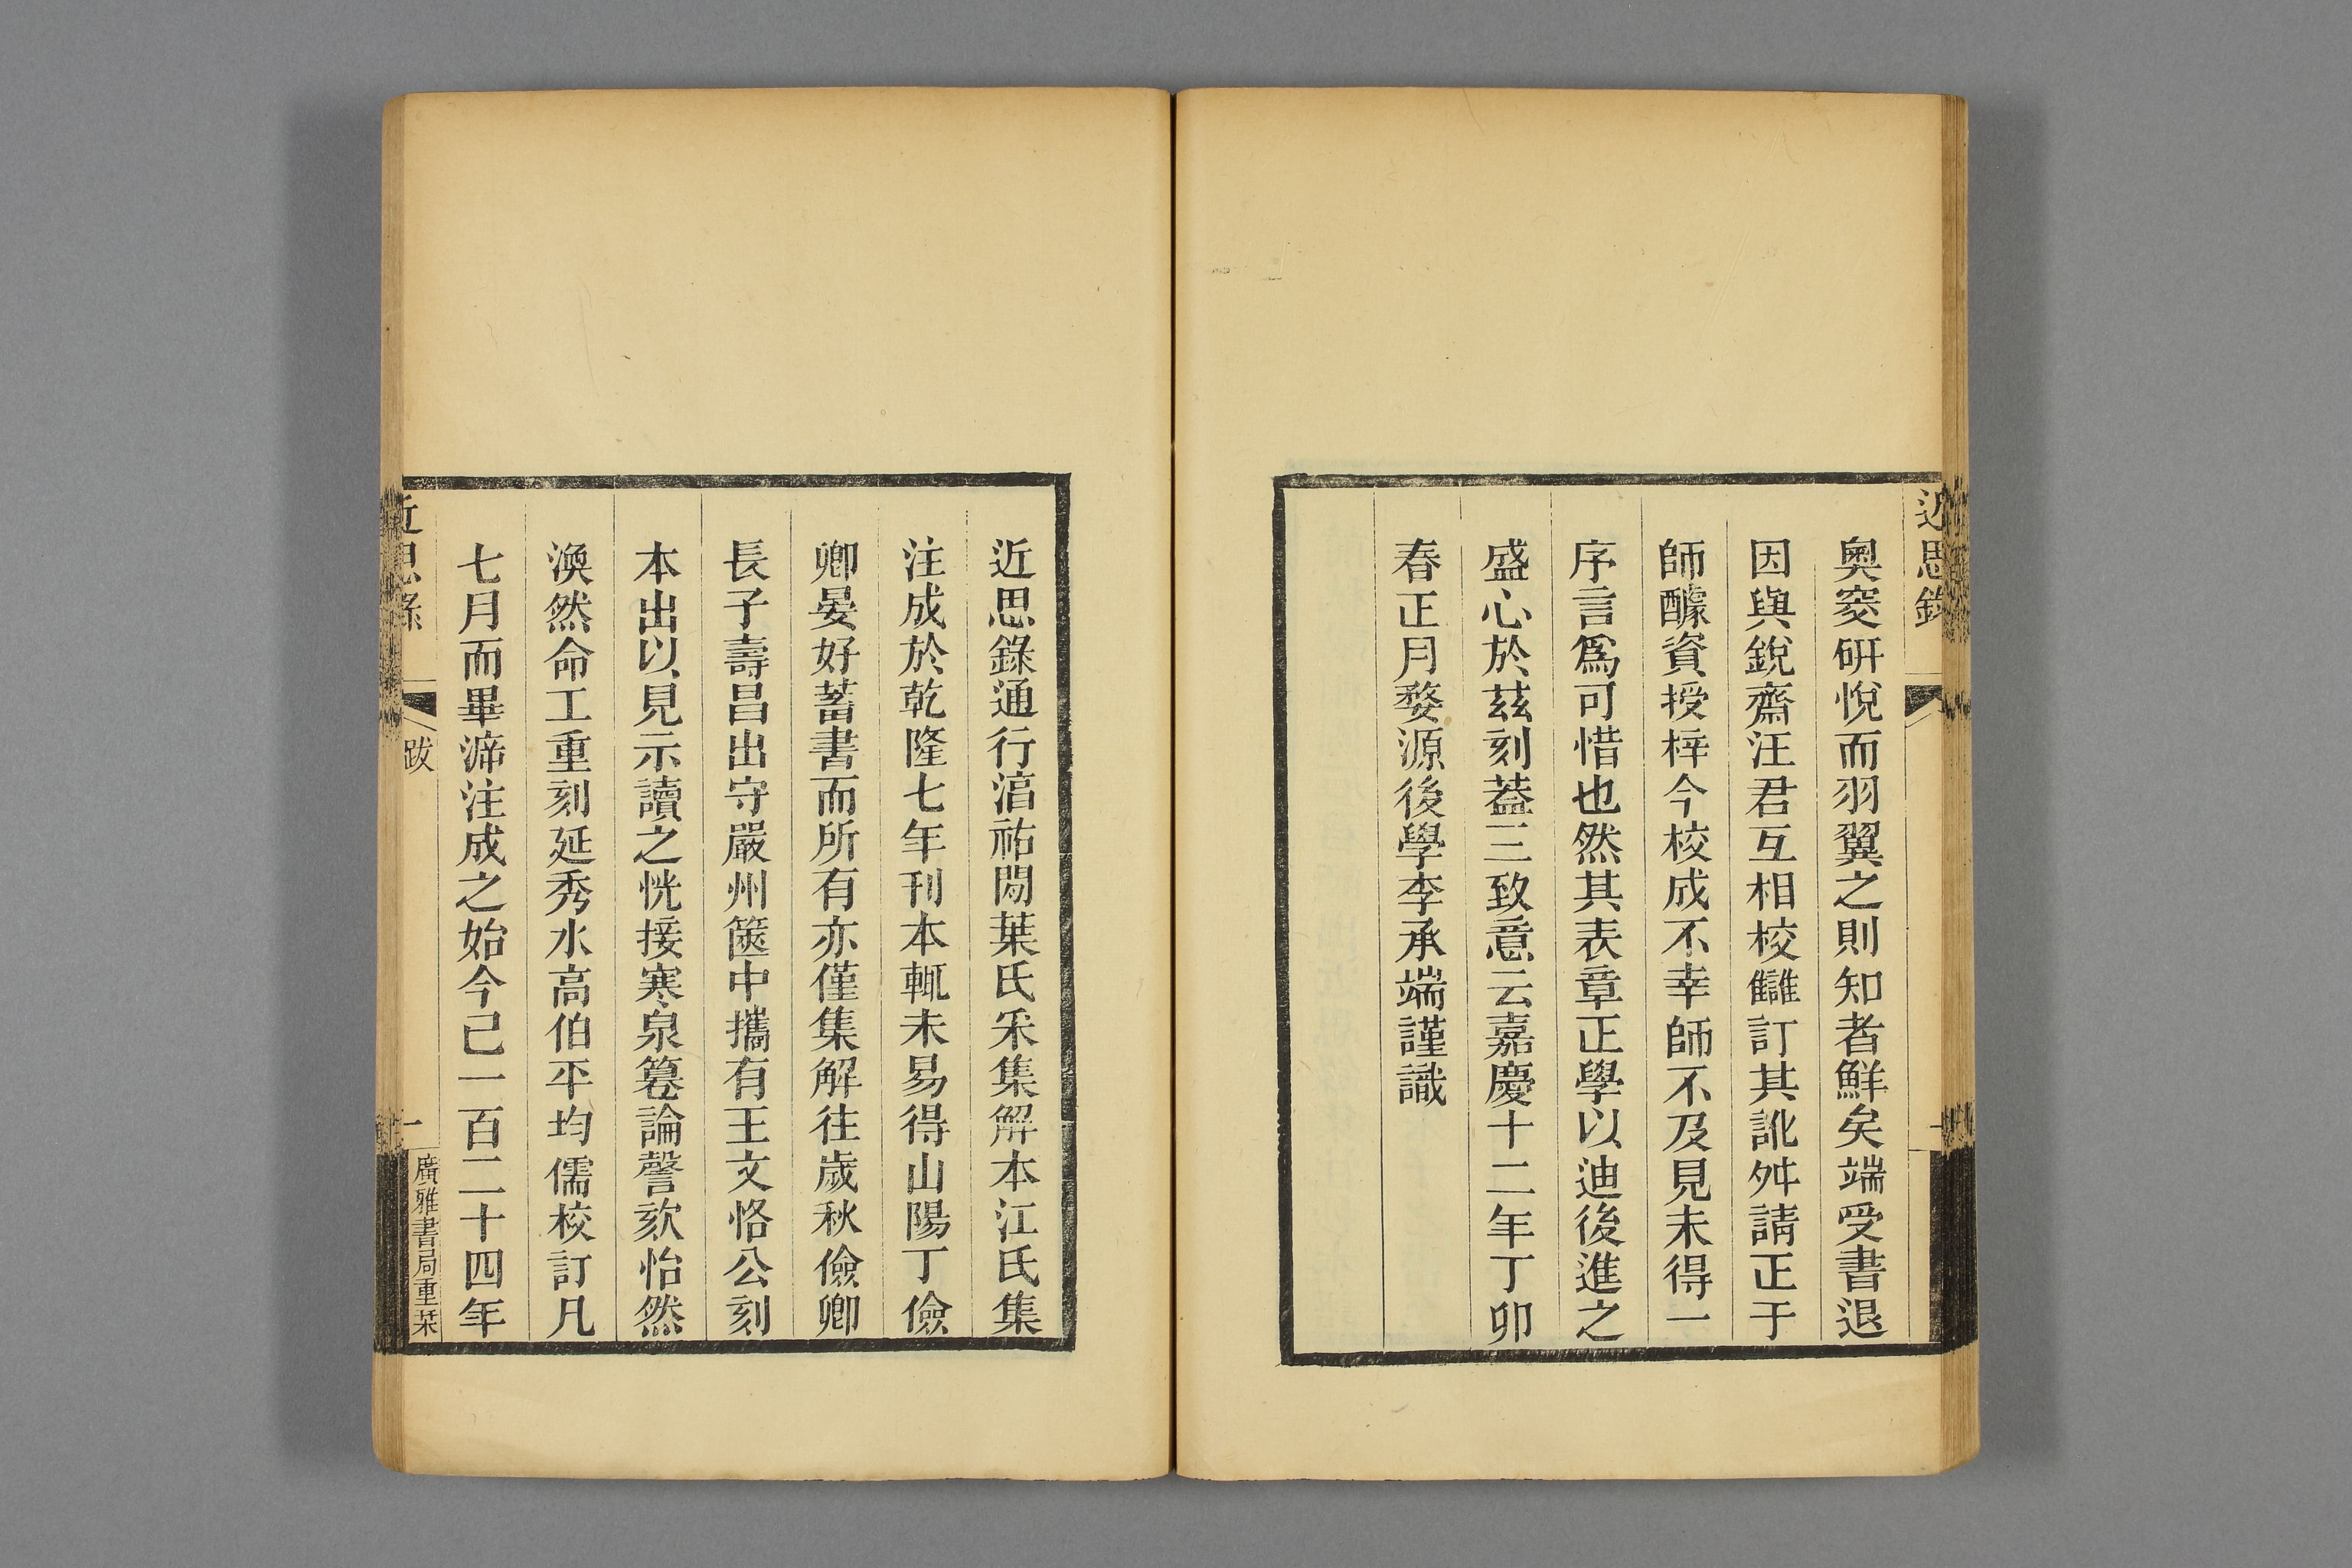 近思錄
奧窔硏悅而羽翼之則知者鮮矣端受書退
因與銳齋汪君互相校讎訂其訛舛請正于
師醵資授梓今校成不幸師不及見未得一
序言爲可惜也然其表章正學以迪後進之
盛心於茲刻蓋三致意云嘉慶十二年丁卯
春正月婺源後學李承端謹識
近思錄通行湻祐閒葉氏采集解本江氏集
注成於乾隆七年刊本輒未易得山陽丁儉
卿晏好蓄書而所有亦僅集解往歲秋儉卿
長子壽昌出守嚴州篋中攜有王文恪公刻
本出以見示讀之恍接寒泉篹論謦欬怡然
渙然命工重刻延秀水高伯平均儒校訂凡
七月而畢渧注成之始今己一百二十四年
近思錄
跋
一
廣雅書局重栞